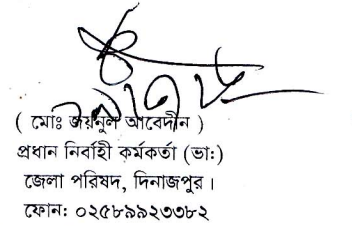 ( মোঃ জয়নুল আবেদীন )
প্রধান নির্বাহী কর্মকর্তা (ভাঃ)
জেলা পরিষদ, দিনাজপুর।
ফোন: ০২৫৮৯৯২৩৩৮২